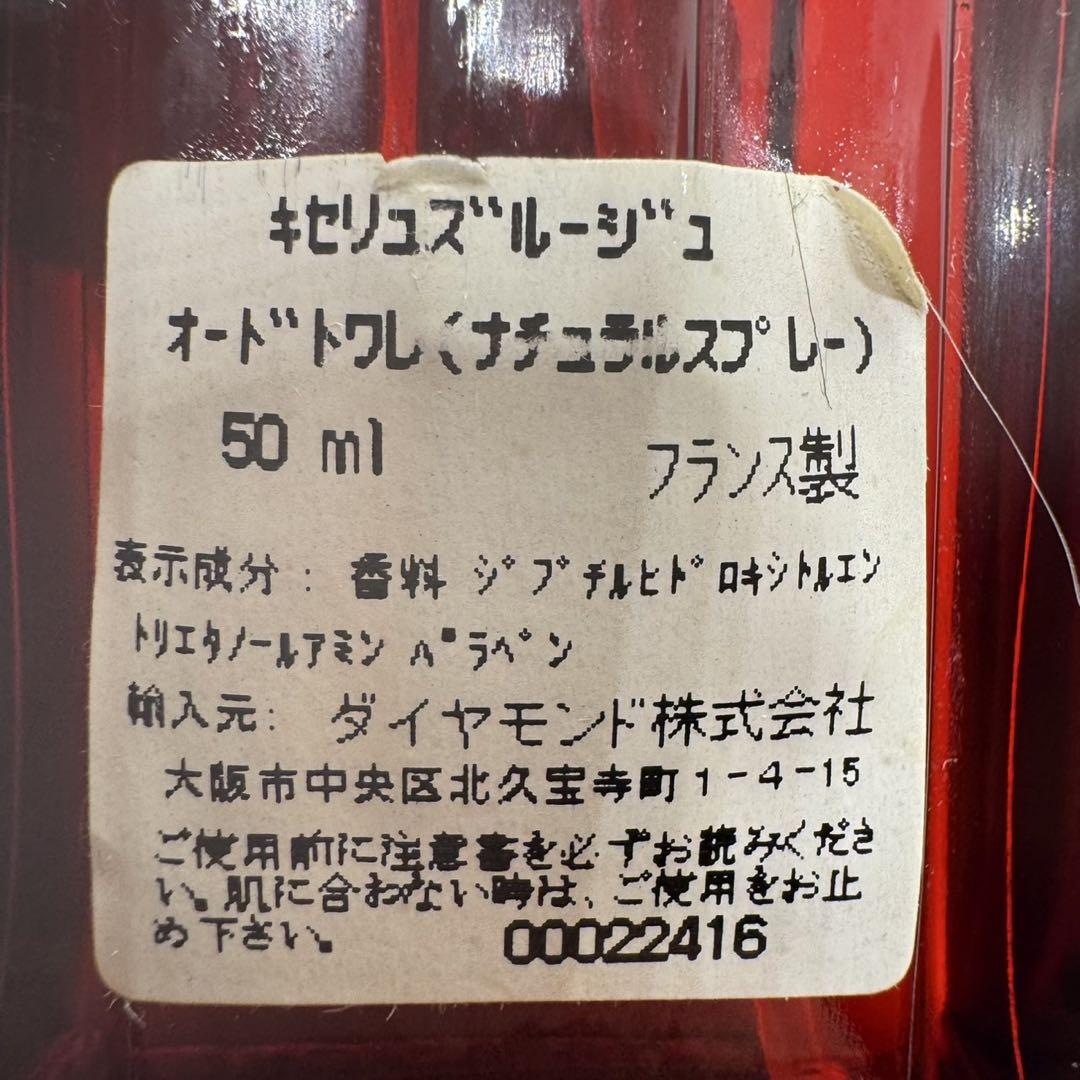 キセリュズルージュ
オードトワレ(ナチュラルスプレー)
50 ml
フランス製
表示成分: 香料 ジブチルヒドロキシトルエン
トリエタノールアミン パラペン
輸入元: ダイヤモンド株式会社
大阪市中央区北久宝寺町1-4-15
ご使用前に注意書を必ずお読みくださ
い。肌に合わない時は、ご使用をお止
め下さい。
00022416